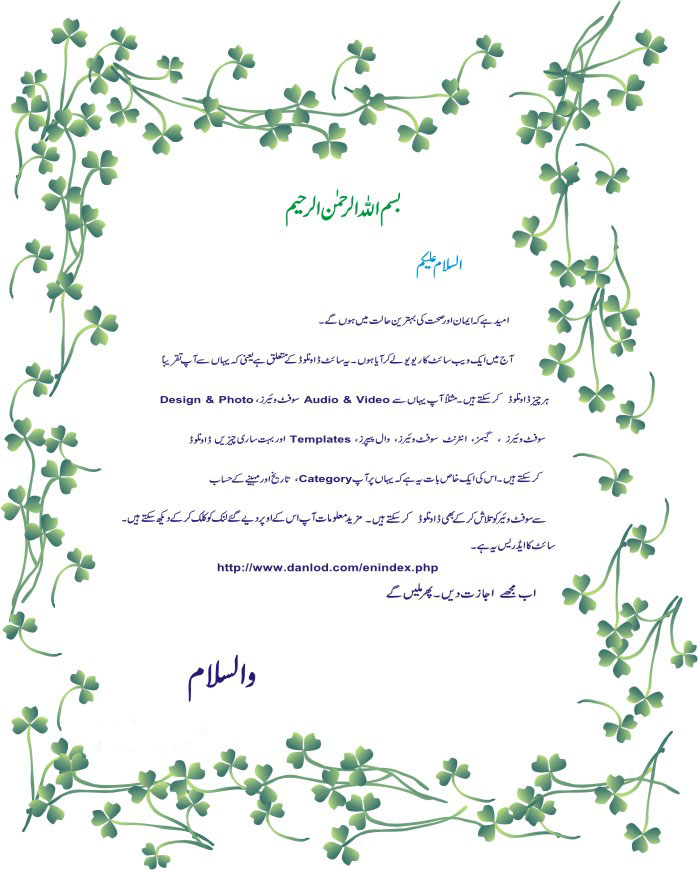 بسم اللہ الرحمٰن الرحیم
السلام علیکم
امید ہے کہ ایمان اور صحت کی بہترین حالت میں ہوں گے۔
آج میں ایک ویب سائٹ کا ریویو لے کر آیا ہوں۔ یہ سائٹ ڈاونلوڈ کے متعلق ہے یعنی کہ یہاں سے آپ تقریباً
ہر چیز ڈاونلوڈ کر سکتے ہیں۔ مثلاً آپ یہاں سے Audio & Video سوفٹ وئیرز، Design & Photo
سوفٹ وئیرز ، گیمز، انٹرنٹ سوفٹ وئیرز، وال پیپرز، Templates اور بہت ساری چیزیں ڈاونلوڈ
کر سکتے ہیں۔ اس کی ایک خاص بات یہ ہے کہ یہاں پر آپ Category، تاریخ اور مہینے کے حساب
سے سوفٹ وئیر کو تلاش کر کے بھی ڈاونلوڈ کر سکتے ہیں۔ مزید معلومات آپ اس کے اوپر دیے گئے لنک کو کلک کر کے دیکھ سکتے ہیں۔
سائٹ کا ایڈریس یہ ہے۔
http://www.danlod.com/enindex.php
اب مجھے اجازت دیں۔ پھر ملیں گے
والسلام